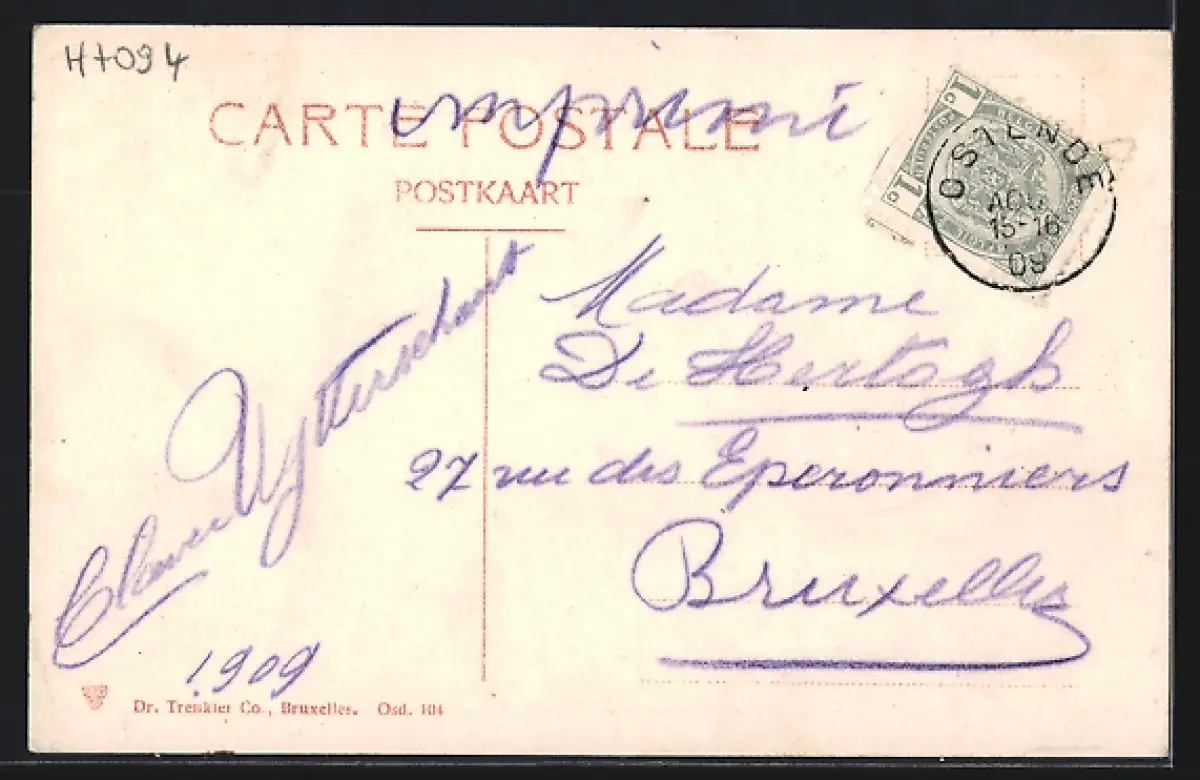 H+094
CARTE POSTALE
imprimé
POSTKAART
1c
1c
OSTENDE
15-16
09
Madame
De Hertogh
27 rue des Eperonniers
Bruxelles
1909
Dr. Trenkler Co., Bruxelles. Osd. 104